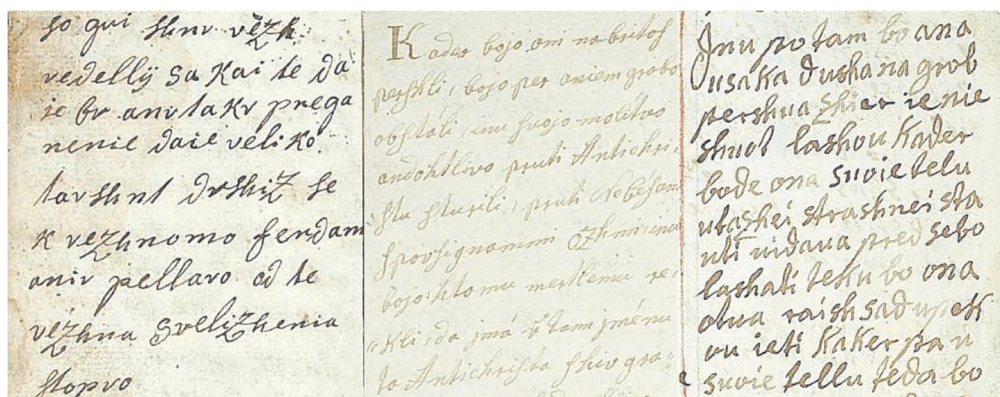 so gui shnv vězh
vedelly sa kai te da
ie bv anv takv prega
nenie daie veliko
tavshnt dvshiz se
k vezhnomo ferdam
aniv pellavo od te
vézhna svelizhenia
stopvo
Kader bojo oni na britof
pershli, bojo per aniem grobo
obstali, inu svojo molitvo
andohtlivo pruti Antichri,
stu sturili, pruti Nebésam
bojo htomu merkeniu re,
kli, da jmá v tam jménu
ta Antichrista shiv gra,
Jnu potam bo ana
usaka dusha na grob
pershua shier ie nie
shuot lashou kader
bode ona suvie telu
utashei strashnei sta
uti vidava pred sebo
lashati teku bo ona
otua raish sad upek
ou ieti kaker pa u
suvie tellu teda bo